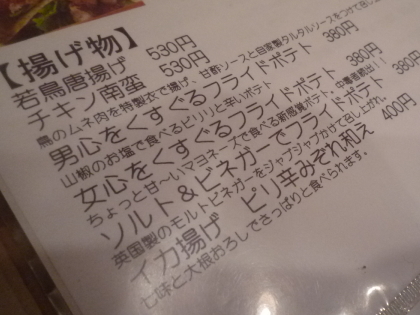 【揚げ物】
若鳥唐揚げ 530円
チキン南蛮 530円
鳥のムネ肉を特製衣で揚げ、甘酢ソースと自家製タルタルソースをつけて召し
男心をくすぐるフライドポテト 380円
山椒のお塩で食べるピリリと辛いポテト
女心をくすぐるフライドポテト 380円
ちょっと甘〜いマヨネーズで食べる新感覚ポテト。中毒者続出！！
ソルト＆ビネガーでフライドポテト 380円
英国製のモルトビネガーをジャブジャブかけて召し上がれ。
イカ揚げ ピリ辛みぞれ和え 400円
七味と大根おろしでさっぱりと食べられます。